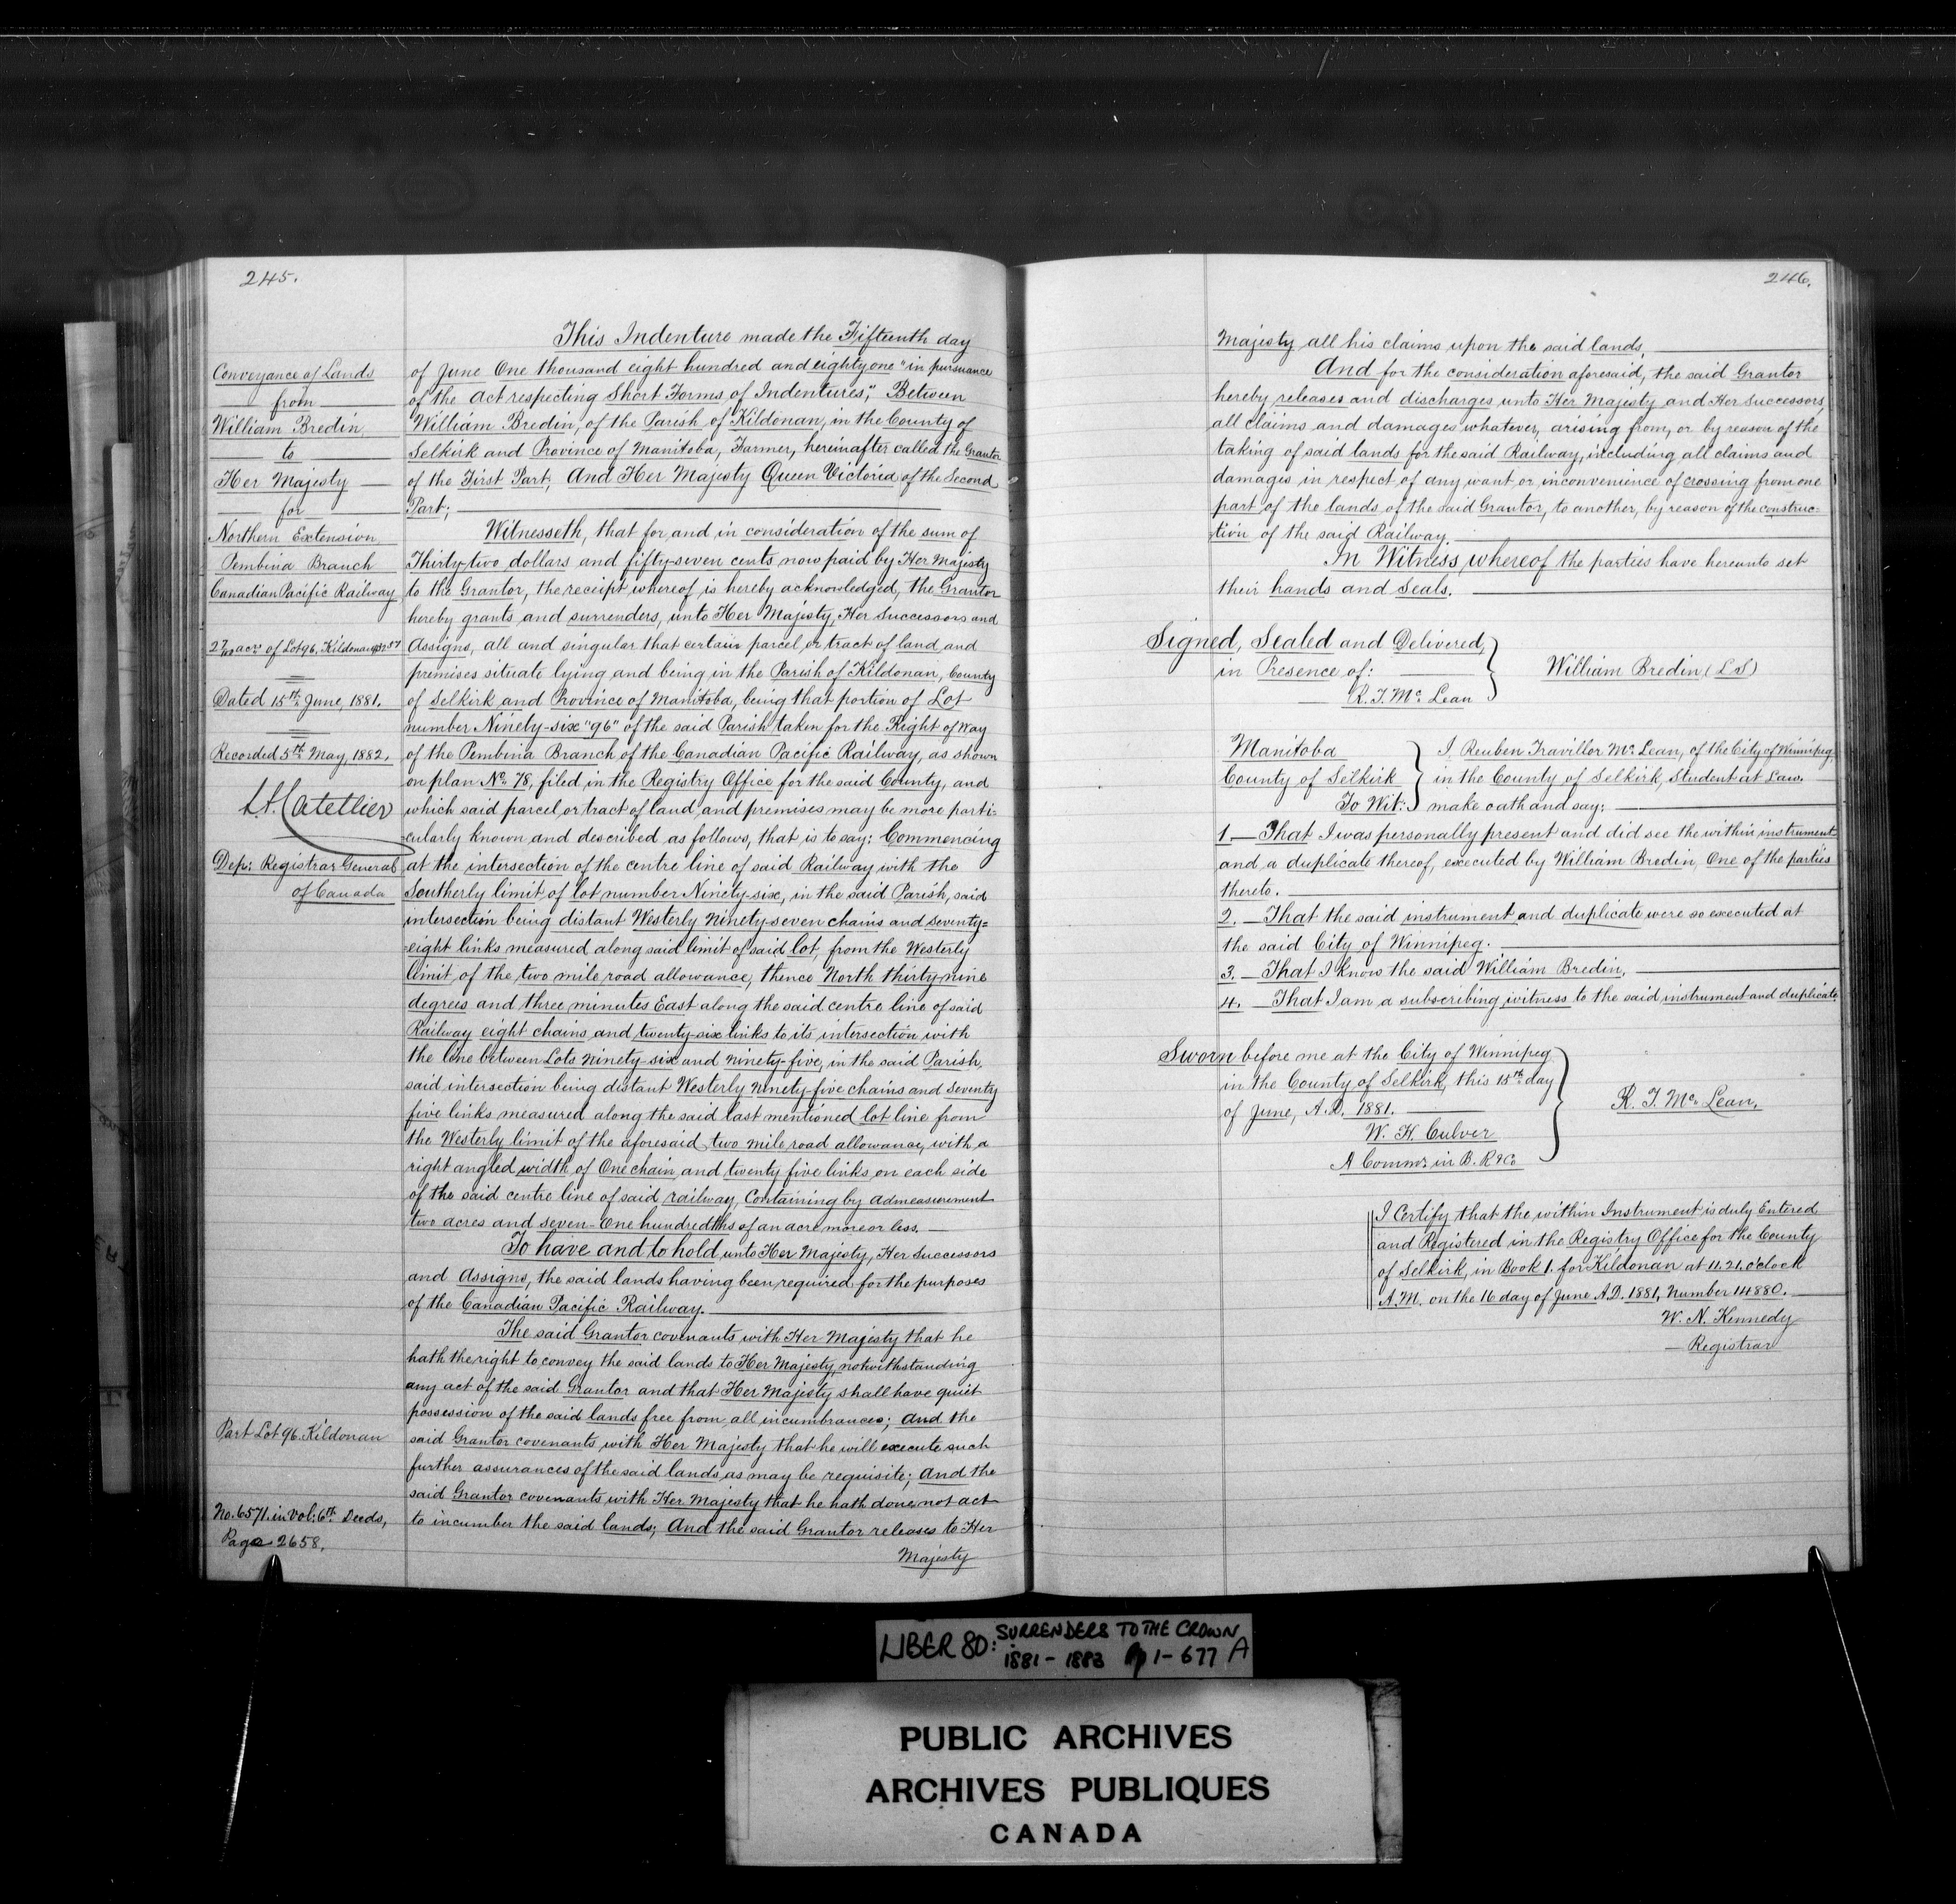 245.
Conveyance of Lands
from
William Bredin
to
Her Majesty
for
Northern Extension
Pembina Branch
Canadian Pacific Railway
2 7/100 acrs of Lot 96, Kildonan $32.57
Dated 15th June, 1881.
Recorded 5th May, 1882.
L.A. Catellier
Dep: Registrar General
of Canada
Part Lot 96. Kildonan
No. 6571. in Vol: 6th Deeds,
Page 2658.
This Indenture made the Fifteenth day
of June One thousand eight hundred and eighty one "in pursuance
of the Act respecting Short Forms of Indentures;" Between
William Bredin, of the Parish of Kildonan, in the County of
Selkirk and Province of Manitoba, Farmer, hereinafter called the Grantor
of the First Part; And Her Majesty Queen Victoria of the Second
Part;
Witnesseth, that for and in consideration of the sum of
Thirty-two dollars and fifty-seven cents now paid by Her Majesty
to the Grantor, the receipt whereof is hereby acknowledged, the Grantor
hereby grants and surrenders, unto Her Majesty, Her Successors and
Assigns, all and singular that certain parcel or tract of land and
premises situate lying and being in the Parish of Kildonan, County
of Selkirk and Province of Manitoba, being that portion of Lot
number Ninety-six "96" of the said Parish taken for the Right of Way
of the Pembina Branch of the Canadian Pacific Railway, as shown
on plan No. 78, filed in the Registry Office for the said County, and
which said parcel or tract of land and premises may be more parti-
cularly known and described as follows, that is to say: Commencing
at the intersection of the centre line of said Railway with the
Southerly limit of lot number Ninety-six, in the said Parish, said
intersection being distant Westerly Ninety-seven chains and seventy=
=eight links measured along said limit of said lot, from the Westerly
limit of the two mile road allowance, thence North thirty nine
degrees and three minutes East along the said centre line of said
Railway eight chains and twenty-six links to its intersection with
the line between Lots Ninety six and Ninety-five, in the said Parish,
said intersection being distant Westerly Ninety-five chains and seventy
five links measured along the said last mentioned lot line from
the Westerly limit of the aforesaid two mile road allowance, with a
right angled width of One chain and twenty five links on each side
of the said centre line of said railway, Containing by admeasurement
two acres and seven-One hundredths of an acre more or less.
To have and to hold unto Her Majesty, Her Successors
and Assigns, the said lands having been required for the purposes
of the Canadian Pacific Railway.
The said Grantor covenants with Her Majesty that he
hath the right to convey the said lands to Her Majesty, notwithstanding
any act of the said Grantor and that Her Majesty shall have quiet
possession of the said lands free from all incumbrances; and the
said Grantor covenants with Her Majesty that he will execute such
further assurances of the said lands as may be requisite; And the
said Grantor covenants with Her Majesty that he hath done not act
to incumber the said lands; And the said Grantor releases to Her
Majesty
246.
Majesty all his claims upon the said lands.
And for the consideration aforesaid, the said Grantor
hereby releases and discharges unto Her Majesty and Her Successors,
all claims and damages whatever, arising from, or by reason of the
taking of said lands for the said Railway, including all claims and
damages in respect of any want or inconvenience of crossing from one
part of the lands of the said Grantor, to another, by reason of the construc-
tion of the said Railway.
In Witness whereof the parties have hereunto set
their hands and Seals.
Signed, Sealed and Delivered,
in Presence of:
R. T. Mc. Lean
William Bredin (LS)
Manitoba
County of Selkirk
To Wit:
I, Reuben Travillor Mc. Lean, of the City of Winnipeg,
in the County of Selkirk, Student at Law.
make oath and say:
1. That I was personally present and did see the within instrument
and a duplicate thereof, executed by William Bredin, One of the parties
thereto.
2. That the said instrument and duplicate were so executed at
the said City of Winnipeg.
3. That I know the said William Bredin.
4. That I am a subscribing witness to the said instrument and duplicate
Sworn before me at the City of Winnipeg
in the County of Selkirk, this 15th day
of June, A.D. 1881.
W. H. Culver
A Commr. in B. R &c
R. T. Mc. Lean.
I Certify that the within Instrument is duly Entered
and Registered in the Registry Office for the County
of Selkirk, in Book 1. for Kildonan at 11.21. o'clock
A.M. on the 16 day of June A.D. 1881, Number 14880.
W. N. Kennedy
Registrar
LIBER 80: SURRENDERS TO THE CROWN
1881-1883 pp 1-677 A
PUBLIC ARCHIVES
ARCHIVES PUBLIQUES
CANADA